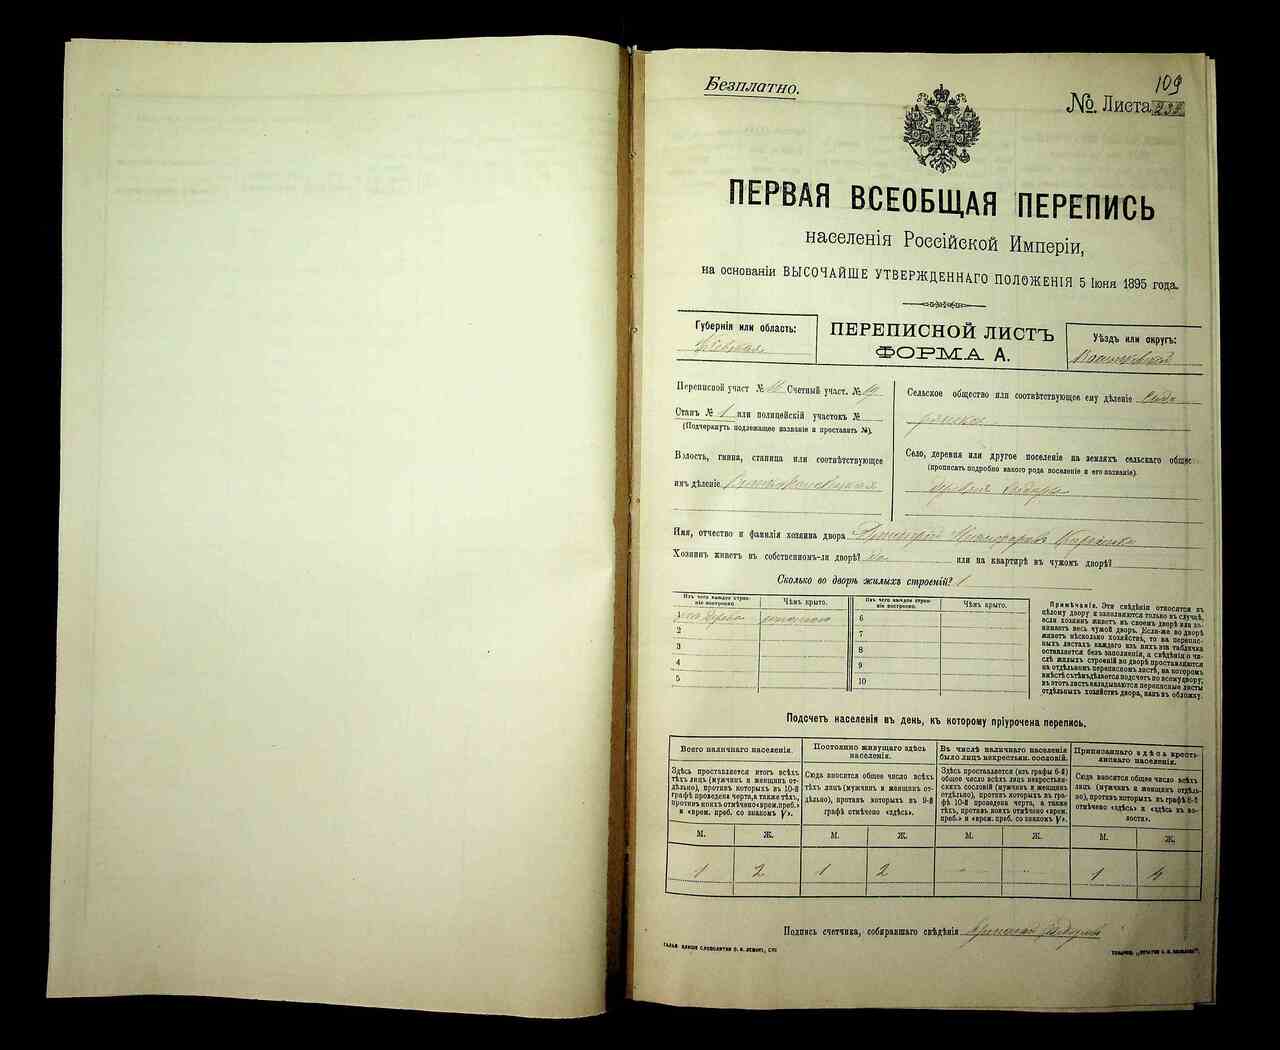 Безплатно.
109
№ Листа 232
ПЕРВАЯ ВСЕОБЩАЯ ПЕРЕПИСЬ
населенія Россійской Имперіи,
на основаніи ВЫСОЧАЙШЕ УТВЕРЖДЕННАГО ПОЛОЖЕНІЯ 5 Іюня 1895 года.
Губернія или область:
Кіевская
ПЕРЕПИСНОЙ ЛИСТЪ
ФОРМА А.
Уѣздъ или округъ:
Переписной участ № Счетный участ. № 19
Станъ № 1 или полицейскій участокъ №
(Подчеркнуть подлежащее названіе и проставить №).
Волость, гмина, станица или соотвѣтствующее
имъ дѣленіе
Сельское общество или соотвѣтствующее ему дѣленіе
Село, деревня или другое поселеніе на земляхъ сельскаго общес
(прописать подробно какого рода поселеніе и его названіе).
деревня
Имя, отчество и фамилія хозяина двора
Хозяинъ живетъ въ собственномъ-ли дворѣ? да или на квартирѣ въ чужомъ дворѣ?
Сколько во дворѣ жилыхъ строеній? 1
Изъ чего каждое строеніе построено. Чѣмъ крыто. Изъ чего каждое строеніе построено. Чѣмъ крыто.
1 изъ дерева соломою 6
2 7
3 8
4 9
5 10
Примѣчаніе. Эти свѣдѣнія относятся къ
цѣлому двору и заполняются только въ случаѣ,
если хозяинъ живетъ въ своемъ дворѣ или за-
нимаетъ весь чужой дворъ. Если-же во дворѣ
живетъ нѣсколько хозяйствъ, то на перепис-
ныхъ листахъ каждаго изъ нихъ эта табличка
оставляется безъ заполненія, а свѣдѣнія о чи-
слѣ жилыхъ строеній во дворѣ проставляются
на отдѣльномъ переписномъ листѣ, на которомъ
вмѣстѣ съ тѣмъ дѣлается подсчетъ по всему двору;
въ этотъ листъ вкладываются переписные листы
отдѣльныхъ хозяйствъ двора, какъ въ обложку.
Подсчетъ населенія въ день, къ которому пріурочена перепись.
Всего наличнаго населенія.
Здѣсь проставляется итогъ всѣхъ
тѣхъ лицъ (мужчинъ и женщинъ от-
дѣльно), противъ которыхъ въ 10-й
графѣ проведена черта, а также тѣхъ,
противъ коихъ отмѣчено «врем. преб.»
и «врем. преб. со знакомъ V».
Постоянно живущаго здѣсь
населенія.
Сюда вносится общее число всѣхъ
тѣхъ лицъ (мужчинъ и женщинъ от-
дѣльно), противъ которыхъ въ 9-й
графѣ отмѣчено «здѣсь».
Въ числѣ наличнаго населенія
было лицъ некрестьян. сословій.
Здѣсь проставляется (изъ графы 6-й)
общее число всѣхъ лицъ некрестьян-
скихъ сословій (мужчинъ и женщинъ
отдѣльно), противъ которыхъ въ гра-
фѣ 10-й проведена черта, а также
тѣхъ, противъ коихъ отмѣчено «врем.
преб.» и «врем. преб. со знакомъ V».
Приписаннаго здѣсь кресть-
янскаго населенія.
Сюда вносится общее число всѣхъ
лицъ (мужчинъ и женщинъ отдѣль-
но), противъ которыхъ въ графѣ 8-й
отмѣчено «здѣсь» и «здѣсь въ во-
лости».
М. Ж. М. Ж. М. Ж. М. Ж.
1 2 1 2 - - 1 4
Подпись счетчика, собиравшаго свѣдѣнія